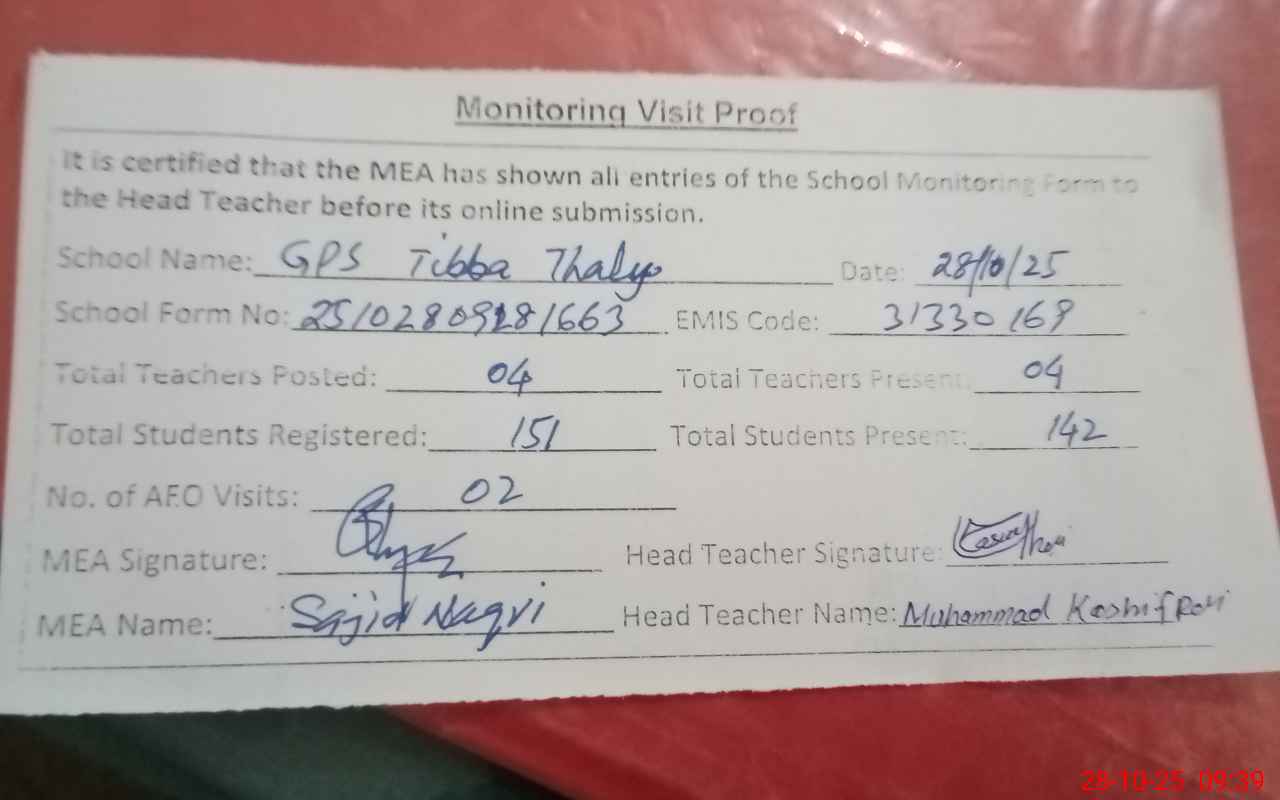 Monitoring Visit Proof
It is certified that the MEA has shown all entries of the School Monitoring Form to
the Head Teacher before its online submission.
School Name: GPS Tibba Thalyo Date: 28/10/25
School Form No: 25102809281663 EMIS Code: 31330169
Total Teachers Posted: 04 Total Teachers Present: 04
Total Students Registered: 151 Total Students Present: 142
No. of AEO Visits: 02
MEA Signature: Head Teacher Signature:
MEA Name: Sajid Naqvi Head Teacher Name: Muhammad Kashif
28-10-25 09:39